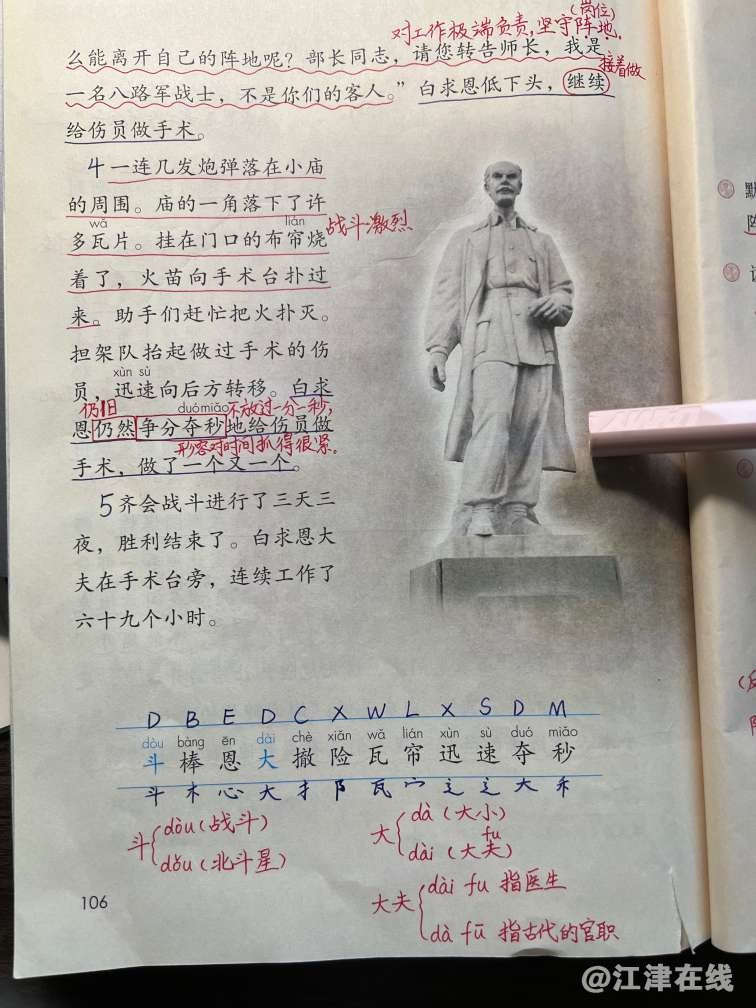 对工作极端负责,坚守阵地。
(岗位)
么能离开自己的阵地呢?部长同志,请您转告师长,我是
接着做
一名八路军战士,不是你们的客人。”白求恩低下头,继续
给伤员做手术。
4 一连几发炮弹落在小庙
的周围。庙的一角落下了许
wǎ lián
多瓦片。挂在门口的布帘烧
战斗激烈
着了,火苗向手术台扑过
来。助手们赶忙把火扑灭。
担架队抬起做过手术的伤
xùn sù
员,迅速向后方转移。白求
仍旧 duó miǎo 不放过一分一秒,
恩仍然争分夺秒地给伤员做
形容对时间抓得很紧。
手术,做了一个又一个。
5 齐会战斗进行了三天三
夜,胜利结束了。白求恩大
夫在手术台旁,连续工作了
六十九个小时。
D B E D C X W L X S D M
dòu bàng ēn dài chè xiǎn wǎ lián xùn sù duó miǎo
斗 棒 恩 大 撤 险 瓦 帘 迅 速 夺 秒
斗 木 心 大 扌 阝 瓦 宀 辶 辶 大 禾
斗 dòu (战斗)
dǒu (北斗星)
大 dà (大小)
fu
dài (大夫)
大夫 dài fu 指医生
dà fū 指古代的官职
106
默
阵
@江津在线